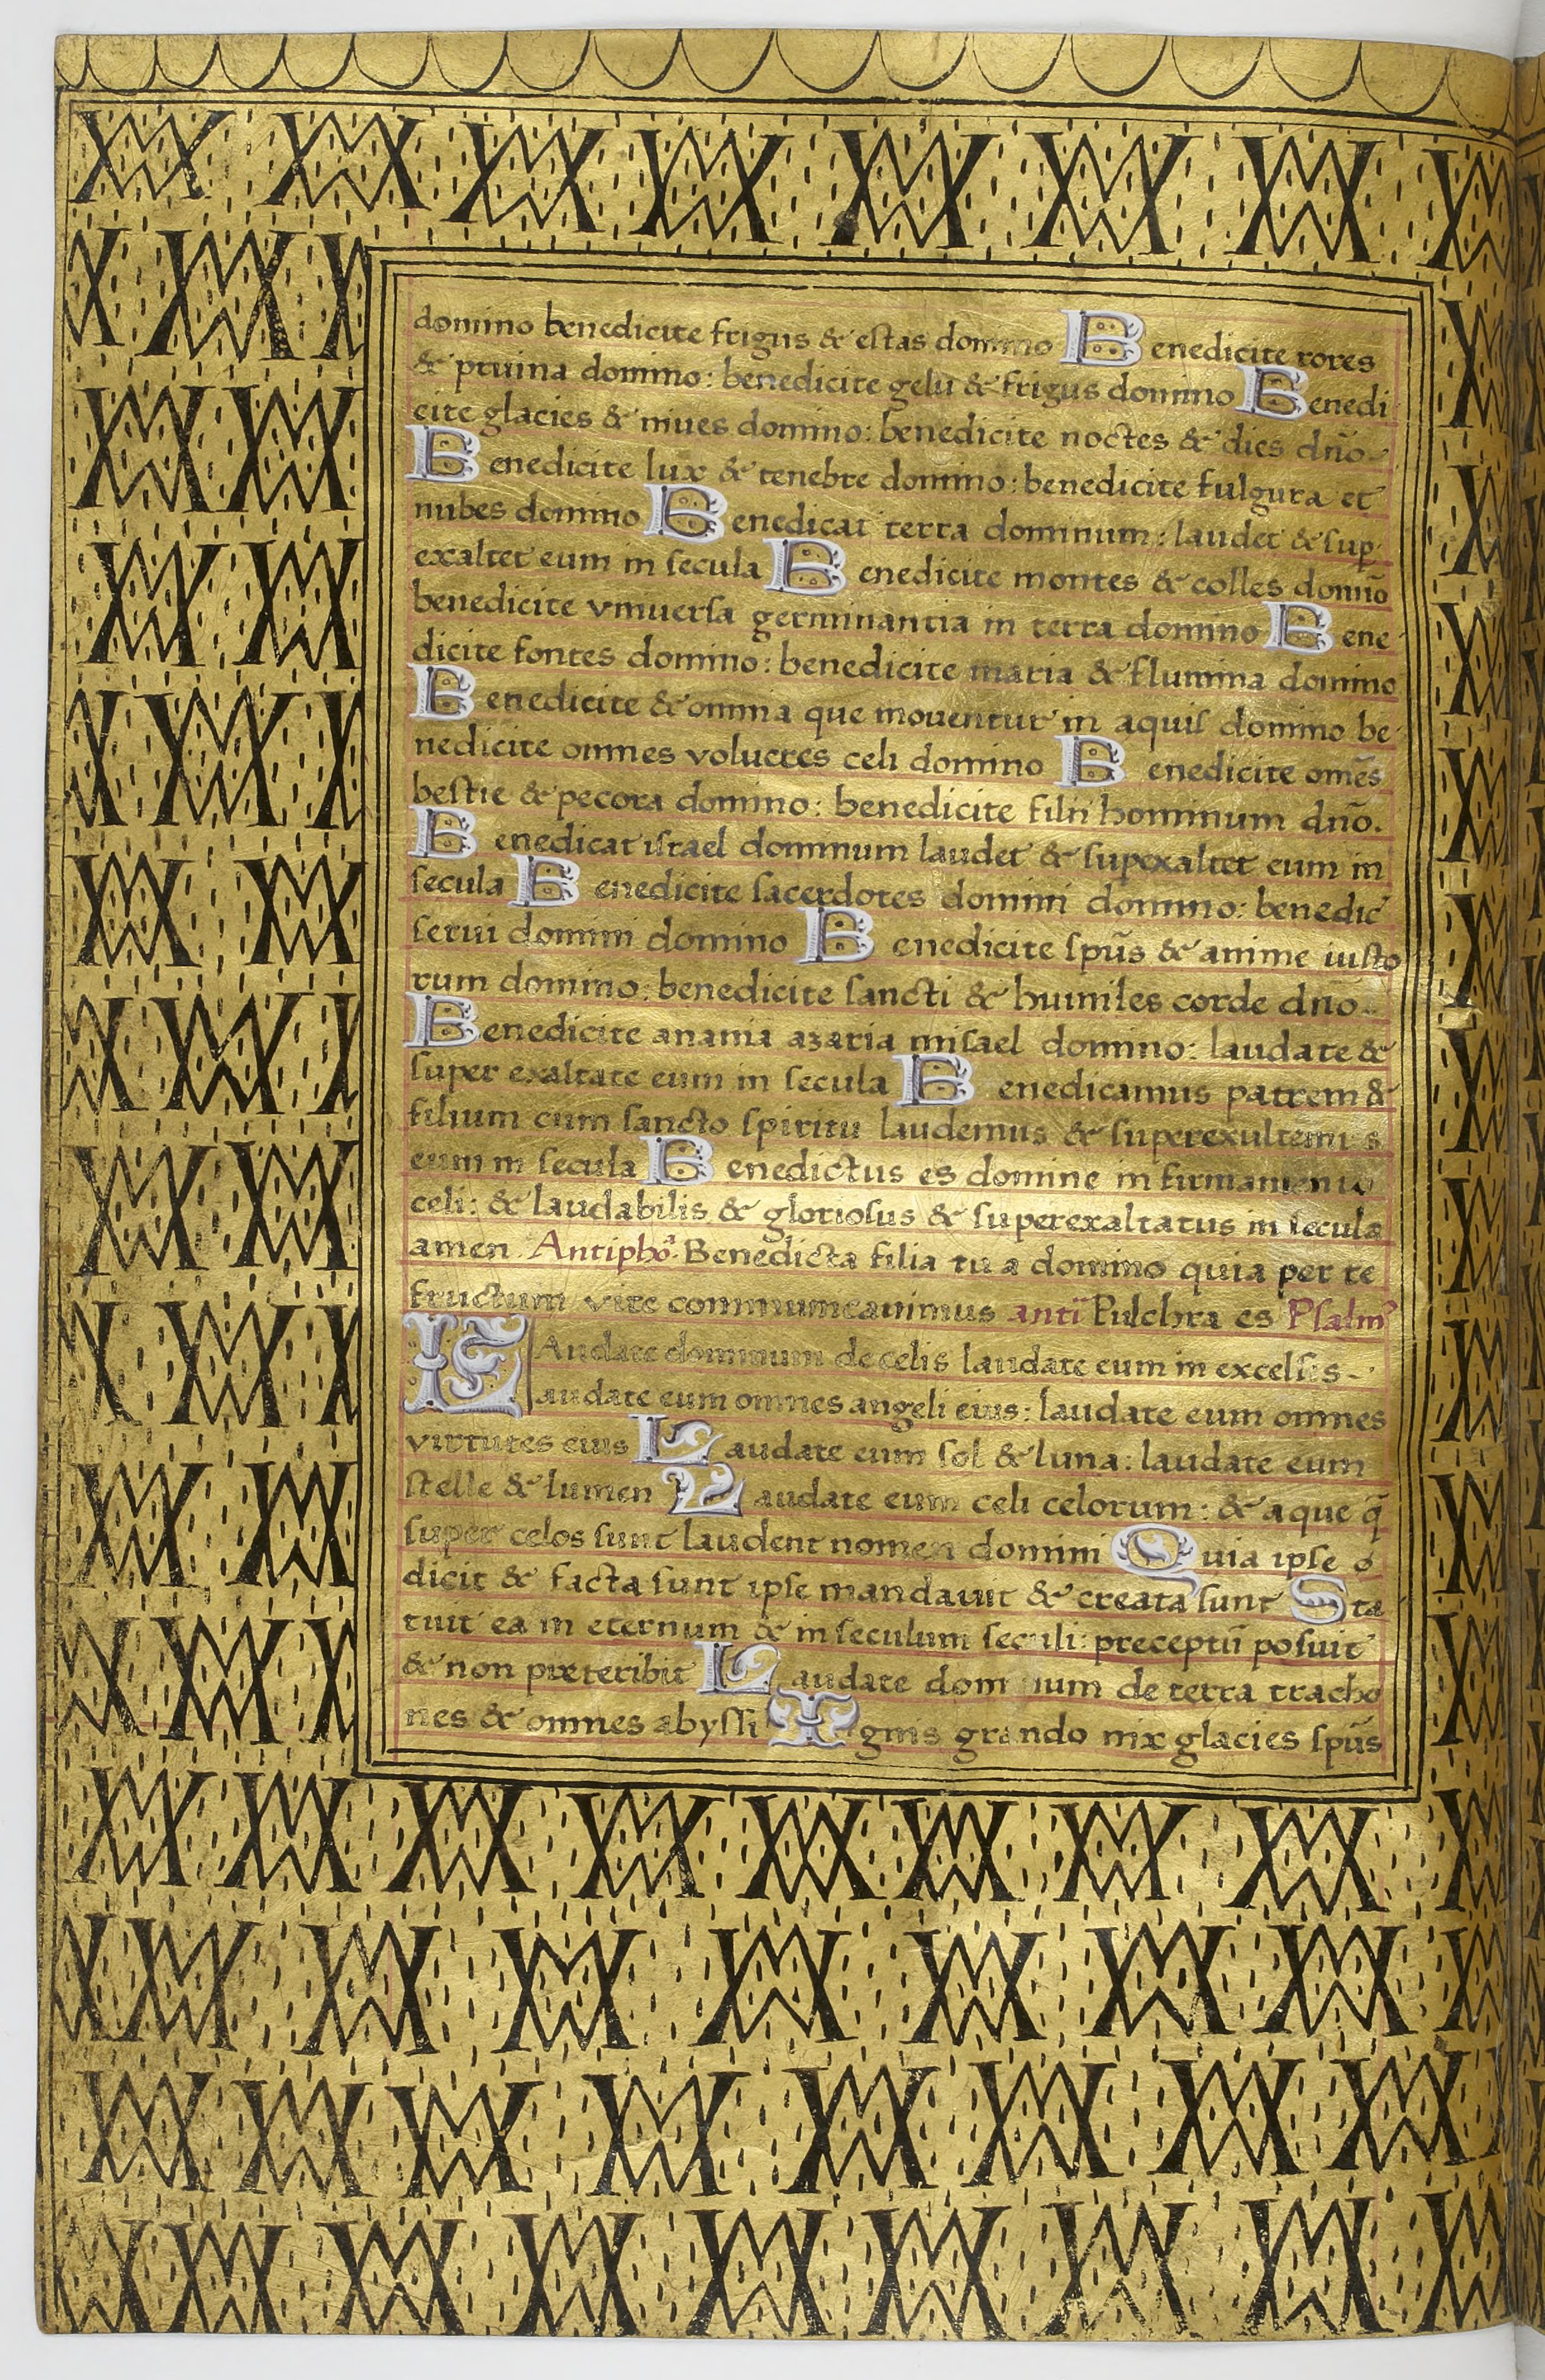 domino benedicite frigus & estas domino Benedicite rores
& pruina domino: benedicite gelu & frigus domino Benedi
cite glacies & niues domino: benedicite noctes & dies dño
Benedicite lux & tenebre domino: benedicite fulgura et
nubes domino Benedicat terra dominum: laudet & sup
exaltet eum in secula Benedicite montes & colles domĩo
benedicite vniuersa germinantia in terra domino Bene
dicite fontes domino: benedicite maria & flumina domino
Benedicite & omnia que mouentur in aquis domino be
nedicite omnes volucres celi domino Benedicite omẽs
bestie & pecora domino: benedicite filii hominum dño.
Benedicat israel dominum laudet & supexaltet eum in
secula Benedicite sacerdotes domini domino: benedic
serui domini domino Benedicite spũs & anime iusto
rum domino: benedicite sancti & humiles corde dño
Benedicite anania azaria misael domino: laudate &
super exaltate eum in secula Benedicamus patrem &
filium cum sancto spiritu laudemus & superexultemus
eum in secula Benedictus es domine in firmamento
celi: & laudabilis & gloriosus & superexaltatus in secula
amen. Antiphõa. Benedicta filia tu a domino quia per te
fructum vite communicauimus anti Pulchra es Psalm⁹
LAudate dominum de celis laudate eum in excelsis
Laudate eum omnes angeli eius: laudate eum omnes
virtutes eius Laudate eum sol & luna: laudate eum
stelle & lumen Laudate eum celi celorum: & aque q̃
super celos sunt laudent nomen domini Quia ipse
dicit & facta sunt ipse mandauit & creata sunt Sta
tuit ea in eternum & in seculum seculi: preceptũ posuit
& non preteribit Laudate dominum de terra tracho
nes & omnes abyssi Ignis grando nix glacies spũs